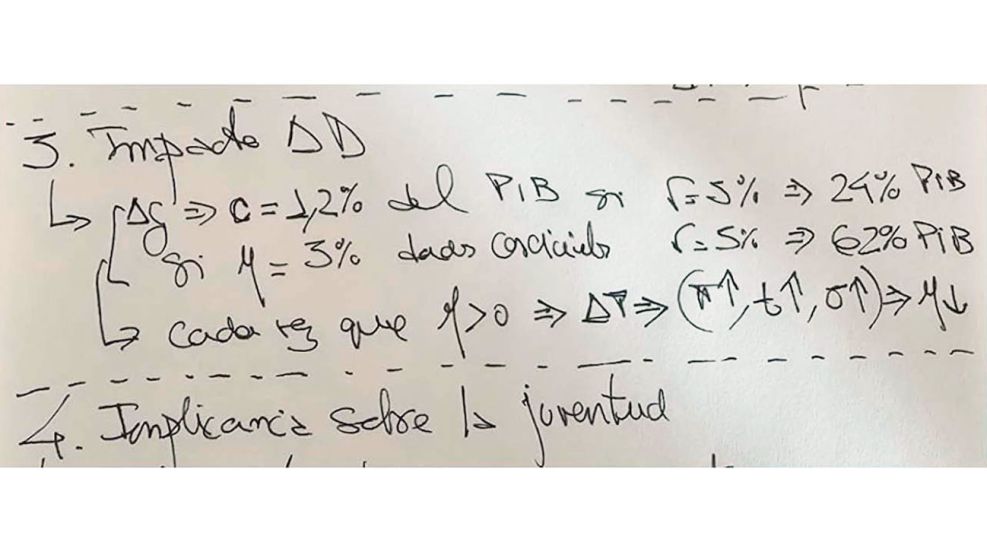 3. Impacto ΔD
↳ Δg ⇒ c = 1,2% del PIB si r = 5% ⇒ 24% PiB
si η = 3% dadas r = 5% ⇒ 62% PiB
↳ cada vez que η > 0 ⇒ ΔP ⇒ (π↑, t↑, σ↑) ⇒ η↓
4. Implicancia sobre la juventud